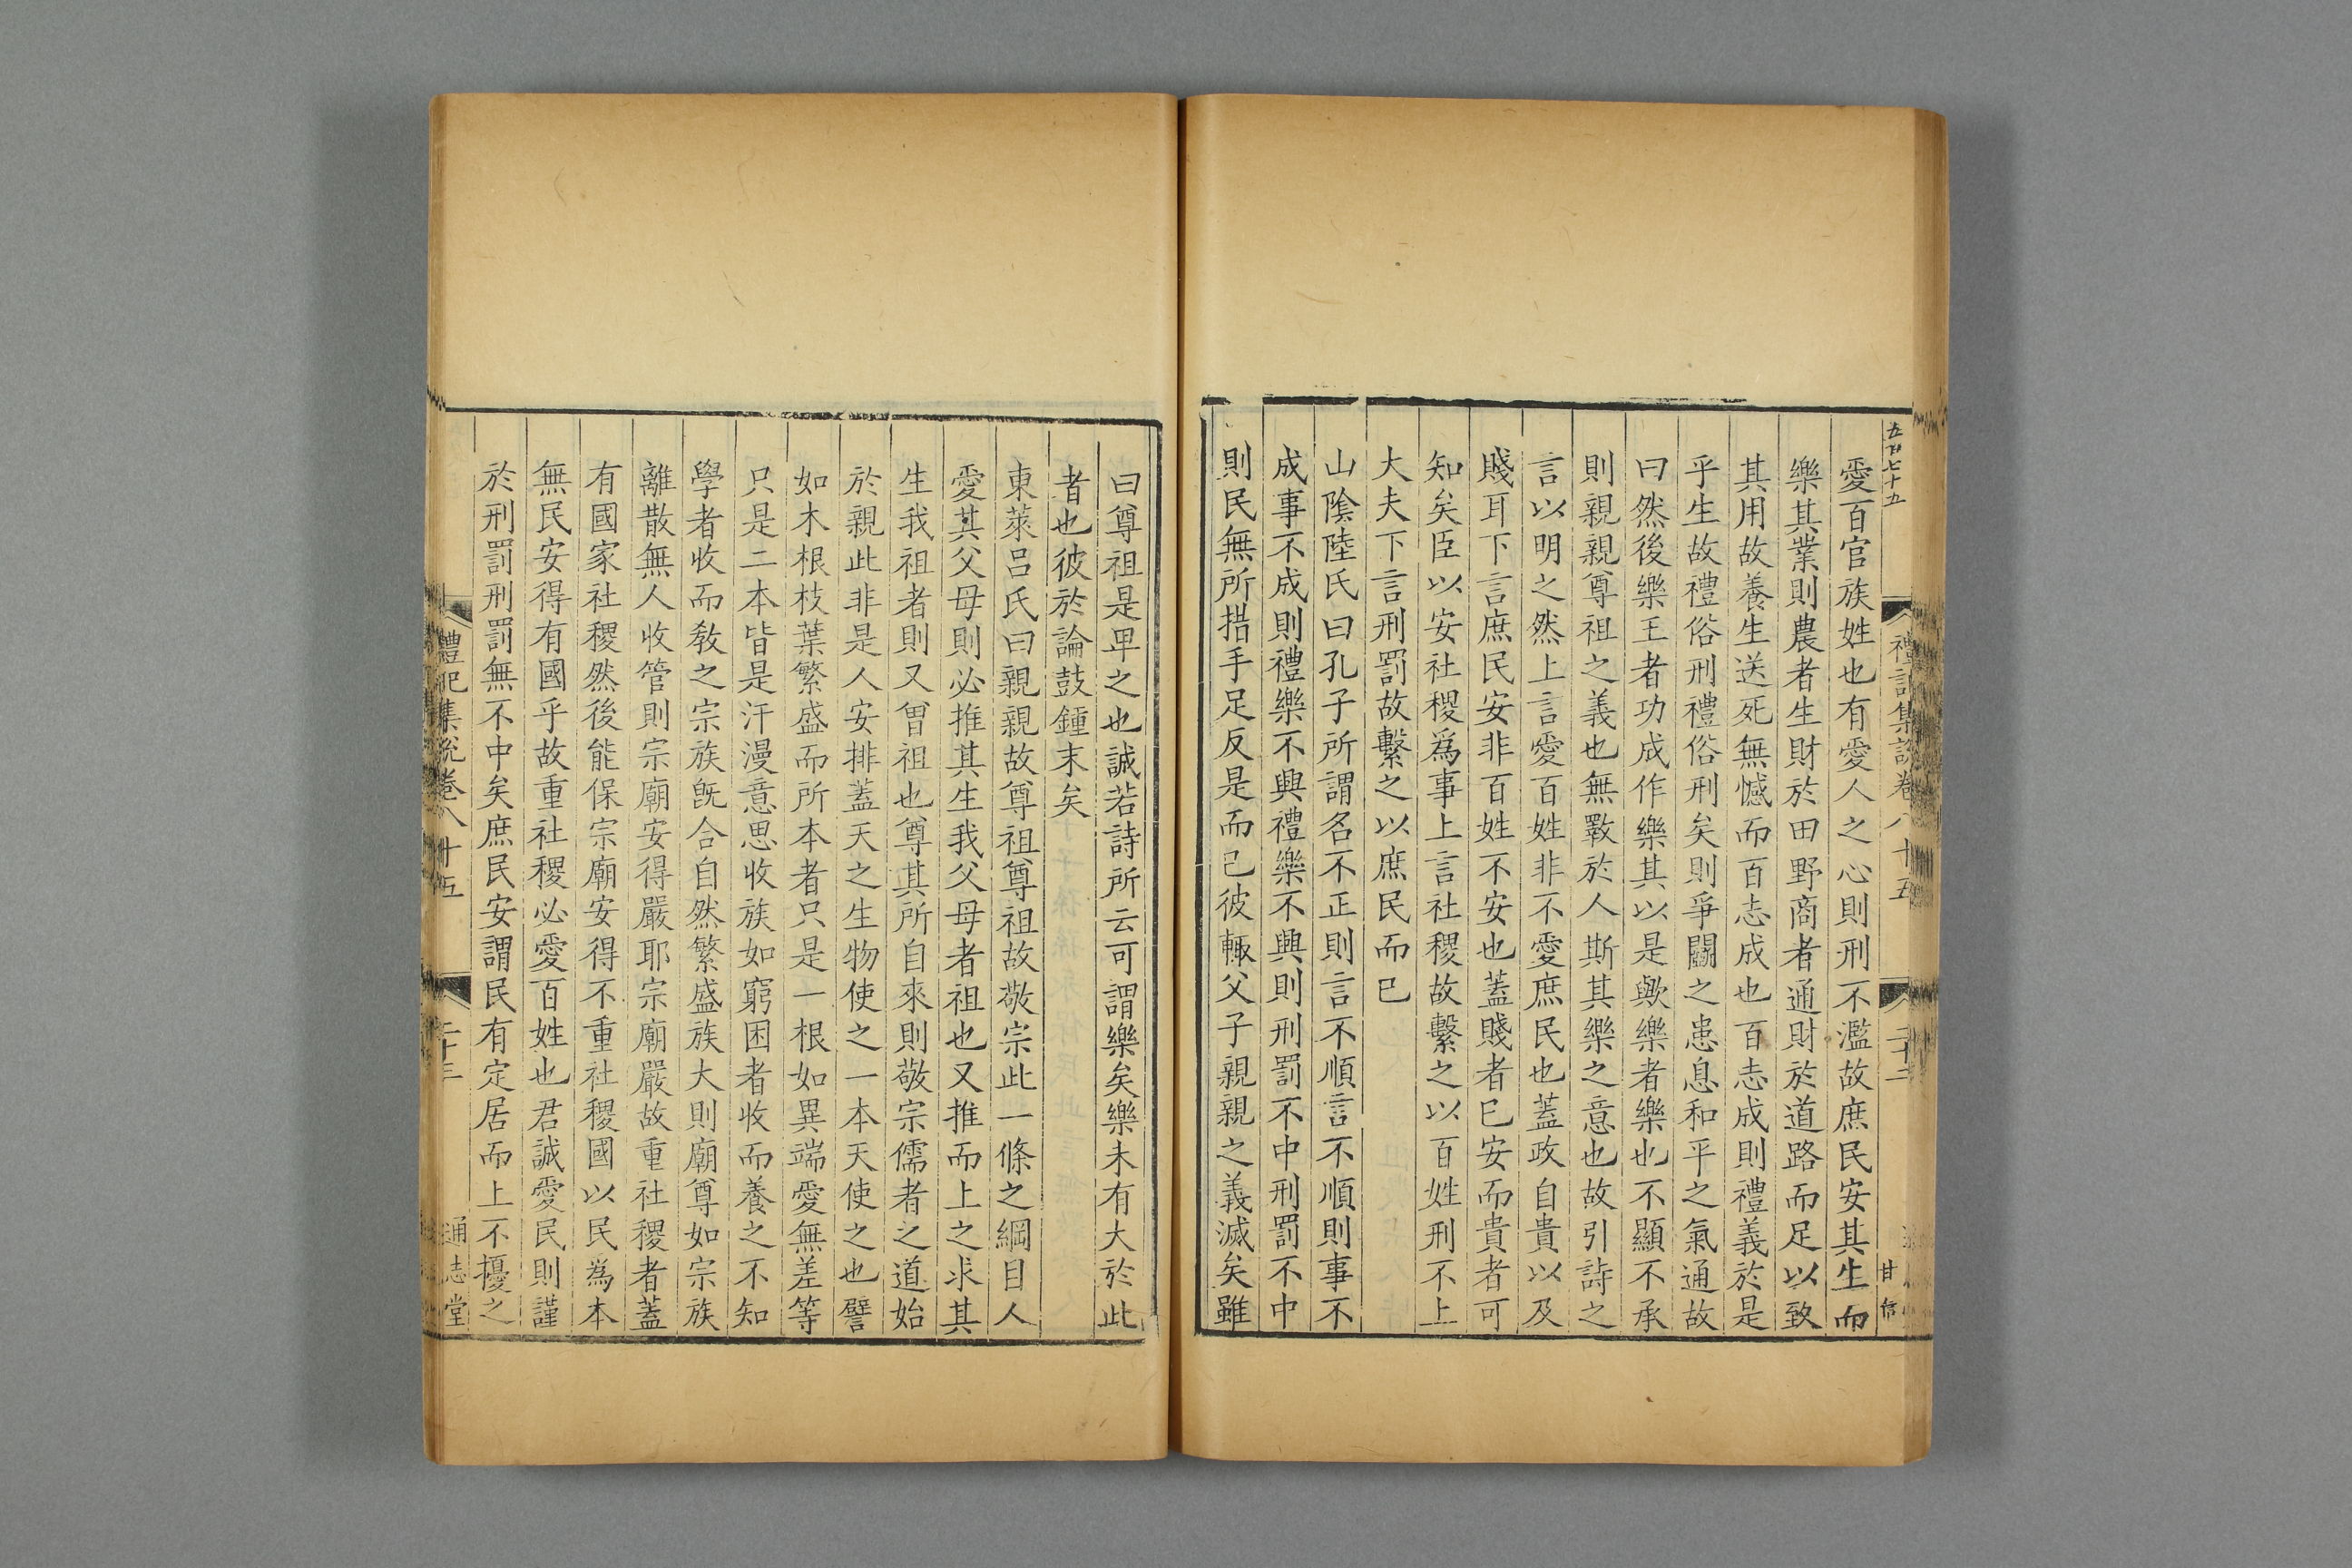 五百七十五
禮記集說卷八十五
二十二
甘信
愛百官族姓也有愛人之心則刑不濫故庶民安其生而
樂其業則農者生財於田野商者通財於道路而足以致
其用故養生送死無憾而百志成也百志成則禮義於是
乎生故禮俗刑禮俗刑矣則爭鬬之患息和平之氣通故
曰然後樂王者功成作樂其以是歟樂者樂也不顯不承
則親親尊祖之義也無斁於人斯其樂之意也故引詩之
言以明之然上言愛百姓非不愛庶民也蓋政自貴以及
賤耳下言庶民安非百姓不安也蓋賤者已安而貴者可
知矣臣以安社稷為事上言社稷故繫之以百姓刑不上
大夫下言刑罰故繫之以庶民而已
山隂陸氏曰孔子所謂名不正則言不順言不順則事不
成事不成則禮樂不興禮樂不興則刑罰不中刑罰不中
則民無所措手足反是而已彼輒父子親親之義滅矣雖
曰尊祖是卑之也誠若詩所云可謂樂矣樂未有大於此
者也彼於論鼓鍾末矣
東萊呂氏曰親親故尊祖尊祖故敬宗此一條之綱目人
愛其父母則必推其生我父母者祖也又推而上之求其
生我祖者則又曾祖也尊其所自來則敬宗儒者之道始
於親此非是人安排蓋天之生物使之一本天使之也譬
如木根枝葉繁盛而所本者只是一根如異端愛無差等
只是二本皆是汗漫意思收族如窮困者收而養之不知
學者收而敎之宗族旣合自然繁盛族大則廟尊如宗族
離散無人收管則宗廟安得嚴耶宗廟嚴故重社稷者蓋
有國家社稷然後能保宗廟安得不重社稷國以民為本
無民安得有國乎故重社稷必愛百姓也君誠愛民則謹
於刑罰刑罰無不中矣庶民安謂民有定居而上不擾之
禮記集說卷八十五
二十三
通志堂